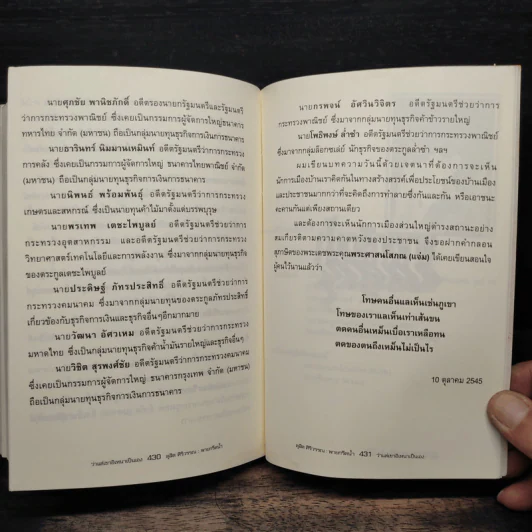 นายศุภชัย พานิชภักดิ์ อดีตรองนายกรัฐมนตรีและรัฐมนตรี
ว่าการกระทรวงพาณิชย์ ซึ่งเคยเป็นกรรมการผู้จัดการใหญ่ธนาคาร
ทหารไทย จำกัด (มหาชน) ถือเป็นกลุ่มนายทุนธุรกิจการเงินการธนาคาร
นายธารินทร์ นิมมานเหมินท์ อดีตรัฐมนตรีว่าการกระทรวง
การคลัง ซึ่งเคยเป็นกรรมการผู้จัดการใหญ่ ธนาคารไทยพาณิชย์ จำกัด
(มหาชน) ถือเป็นกลุ่มนายทุนธุรกิจการเงินการธนาคาร
นายนิพนธ์ พร้อมพันธุ์ อดีตรัฐมนตรีว่าการกระทรวง
เกษตรและสหกรณ์ ซึ่งเป็นนายทุนค้าไม้มาตั้งแต่บรรพบุรุษ
นายพรเทพ เตชะไพบูลย์ อดีตรัฐมนตรีช่วยว่าการ
กระทรวงอุตสาหกรรม และอดีตรัฐมนตรีช่วยว่าการกระทรวง
วิทยาศาสตร์เทคโนโลยีและการพลังงาน ซึ่งมาจากกลุ่มนายทุนธุรกิจ
ของตระกูลเตชะไพบูลย์
นายประดิษฐ์ ภัทรประสิทธิ์ อดีตรัฐมนตรีช่วยว่าการ
กระทรวงคมนาคม ซึ่งมาจากกลุ่มนายทุนของตระกูลภัทรประสิทธิ์
เกี่ยวข้องกับธุรกิจการเงินและธุรกิจอื่นๆอีกมากมาย
นายวัฒนา อัศวเหม อดีตรัฐมนตรีช่วยว่าการกระทรวง
มหาดไทย ซึ่งเป็นกลุ่มนายทุนธุรกิจค้าน้ำมันรายใหญ่และธุรกิจอื่นๆ
นายวิชิต สุรพงษ์ชัย อดีตรัฐมนตรีว่าการกระทรวงคมนาคม
ซึ่งเคยเป็นกรรมการผู้จัดการใหญ่ ธนาคารกรุงเทพ จำกัด (มหาชน)
ถือเป็นกลุ่มนายทุนธุรกิจการเงินการธนาคาร
430
นายกรพจน์ อัศวินวิจิตร อดีตรัฐมนตรีช่วยว่าการ
กระทรวงพาณิชย์ ซึ่งมาจากกลุ่มนายทุนธุรกิจค้าข้าวรายใหญ่
นายโพธิพงษ์ ล่ำซำ อดีตรัฐมนตรีช่วยว่าการกระทรวงพาณิชย์
ซึ่งมาจากกลุ่มล็อกซเล่ย์ นักธุรกิจของตระกูลล่ำซำ ฯลฯ
ผมเขียนบทความวันนี้ด้วยเจตนาที่ต้องการจะเห็น
นักการเมืองบ้านเราคิดกันในทางสร้างสรรค์เพื่อประโยชน์ของบ้านเมือง
และประชาชนมากกว่าที่จะคิดถึงการทำลายซึ่งกันและกัน หรือเอาชนะ
คะคานกันแต่เพียงสถานเดียว
และต้องการจะเห็นนักการเมืองส่วนใหญ่ดำรงสถานะอย่าง
สมเกียรติตามความคาดหวังของประชาชน จึงขอฝากคำกลอน
สุภาษิตของพระเดชพระคุณพระศาสนโสภณ (แจ่ม) ได้เคยเขียนสอนใจ
ผู้คนไว้นานแล้วว่า
โทษคนอื่นแลเห็นเช่นภูเขา
โทษของเราแลเห็นเท่าเส้นขน
ตดคนอื่นเหม็นเบื่อเราเหลือทน
ตดของตนถึงเหม็นไม่เป็นไร
10 ตุลาคม 2545
431